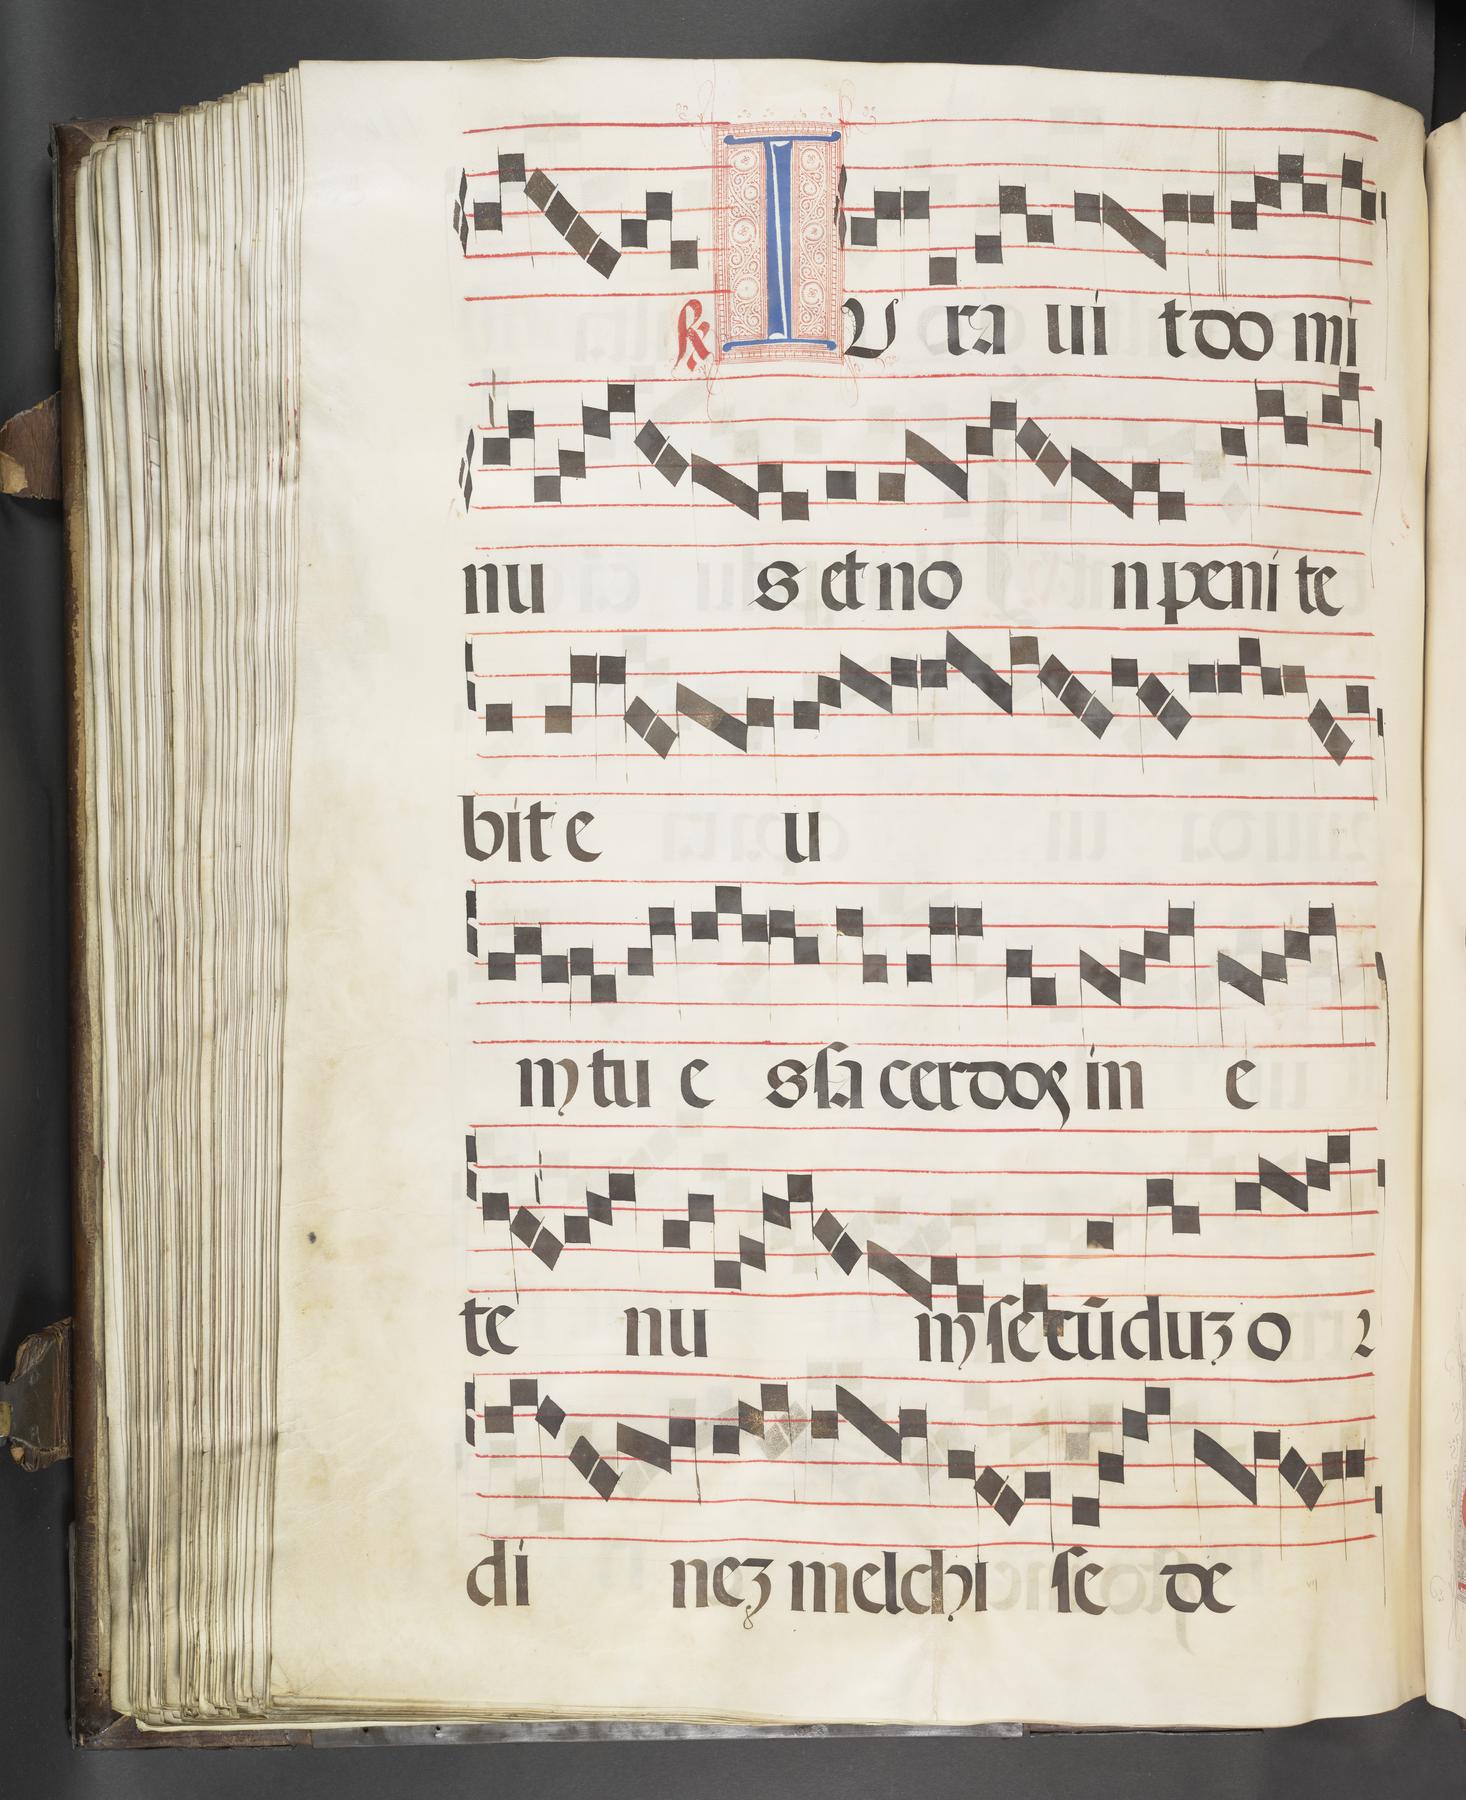 R IU ra ui t do mi
nu s et no n peni te
bit e u
m tu e s sa cerdos in e
te nu m secūduz o r
di nez melchi se de